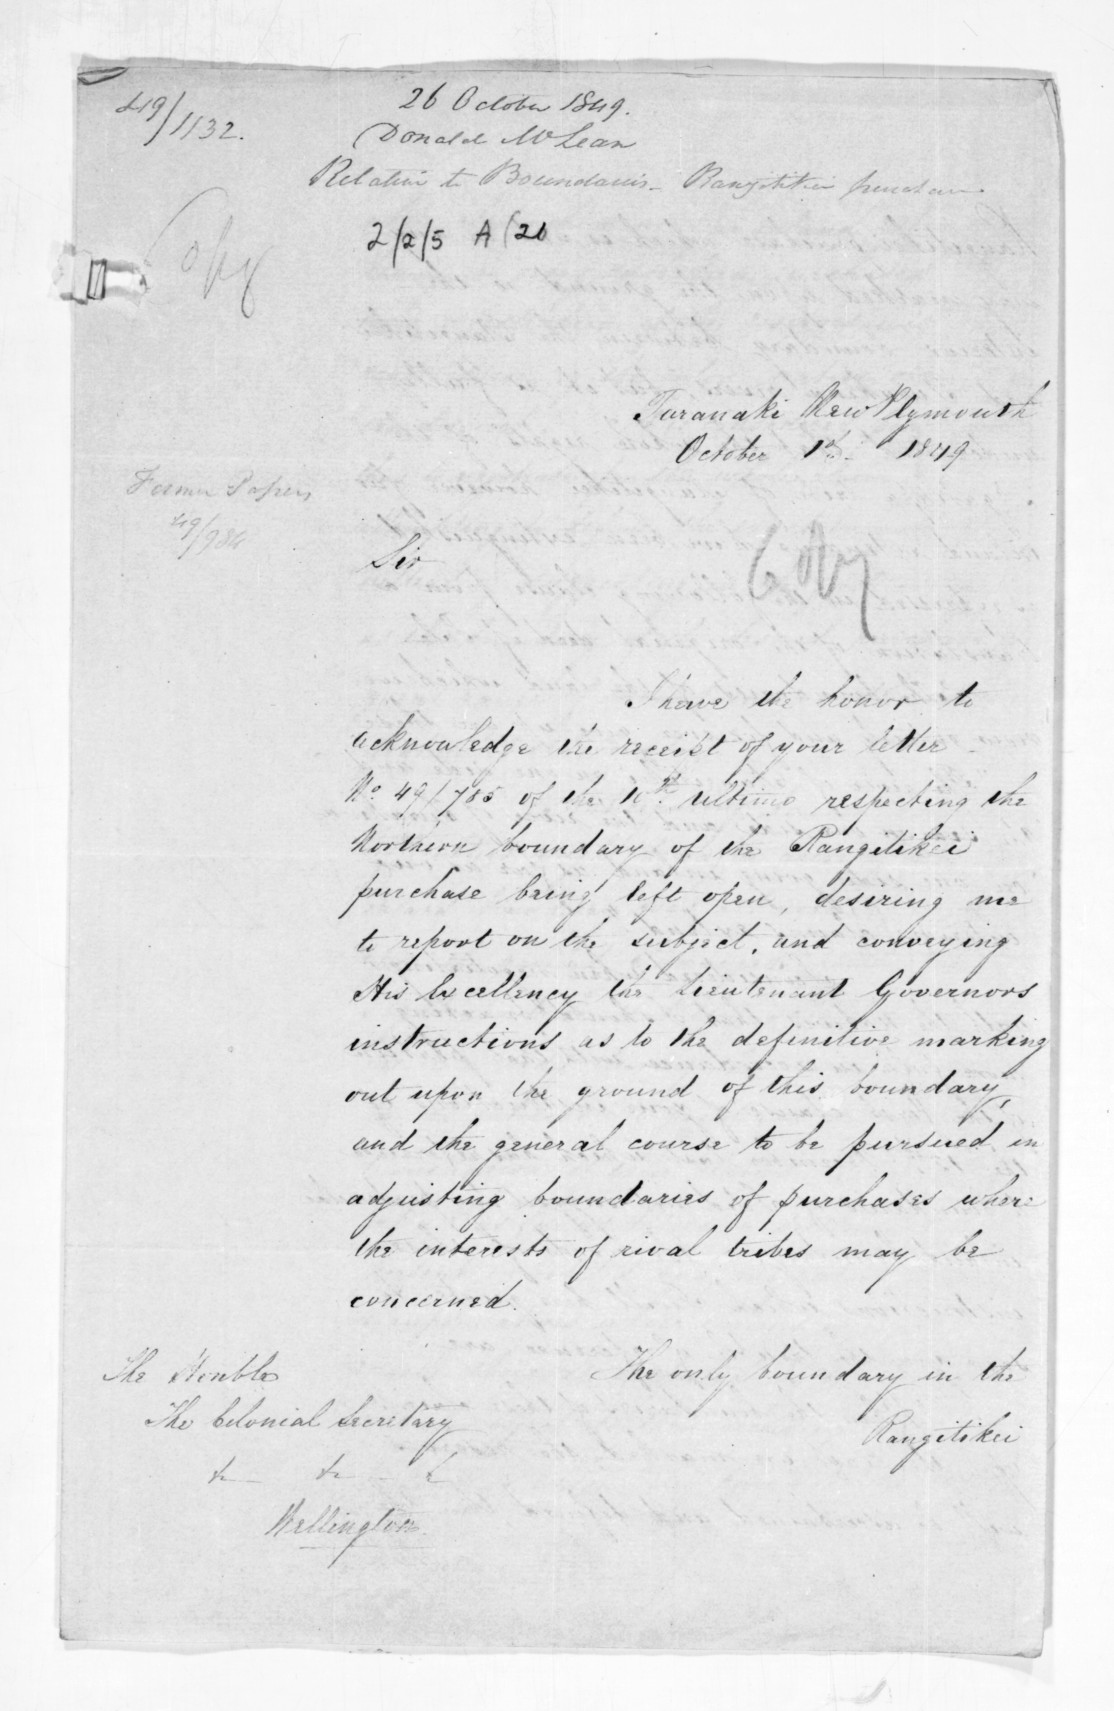 49/1132.
26 October 1849.
Donald McLean
Relative to Boundaries - Rangitikei purchase
2/2/5 A/20
Copy
Taranaki New Plymouth
October 1st. 1849
Former Papers
49/984
Sir
Copy
I have the honor to
acknowledge the receipt of your letter
No. 49/785 of the ultimo respecting the
Northern boundary of the Rangitikei
purchase being left open, desiring me
to report on the subject, and conveying
His Excellency the Lieutenant Governors
instructions as to the definitive marking
out upon the ground of this boundary,
and the general course to be pursued in
adjusting boundaries of purchases where
the interests of rival tribes may be
concerned.
The only boundary in the
Rangitikei
The Honble
The Colonial Secretary
&c - &c - &
Wellington